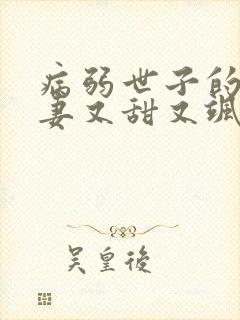 病弱世子的
妻又甜又飒
吴皇後